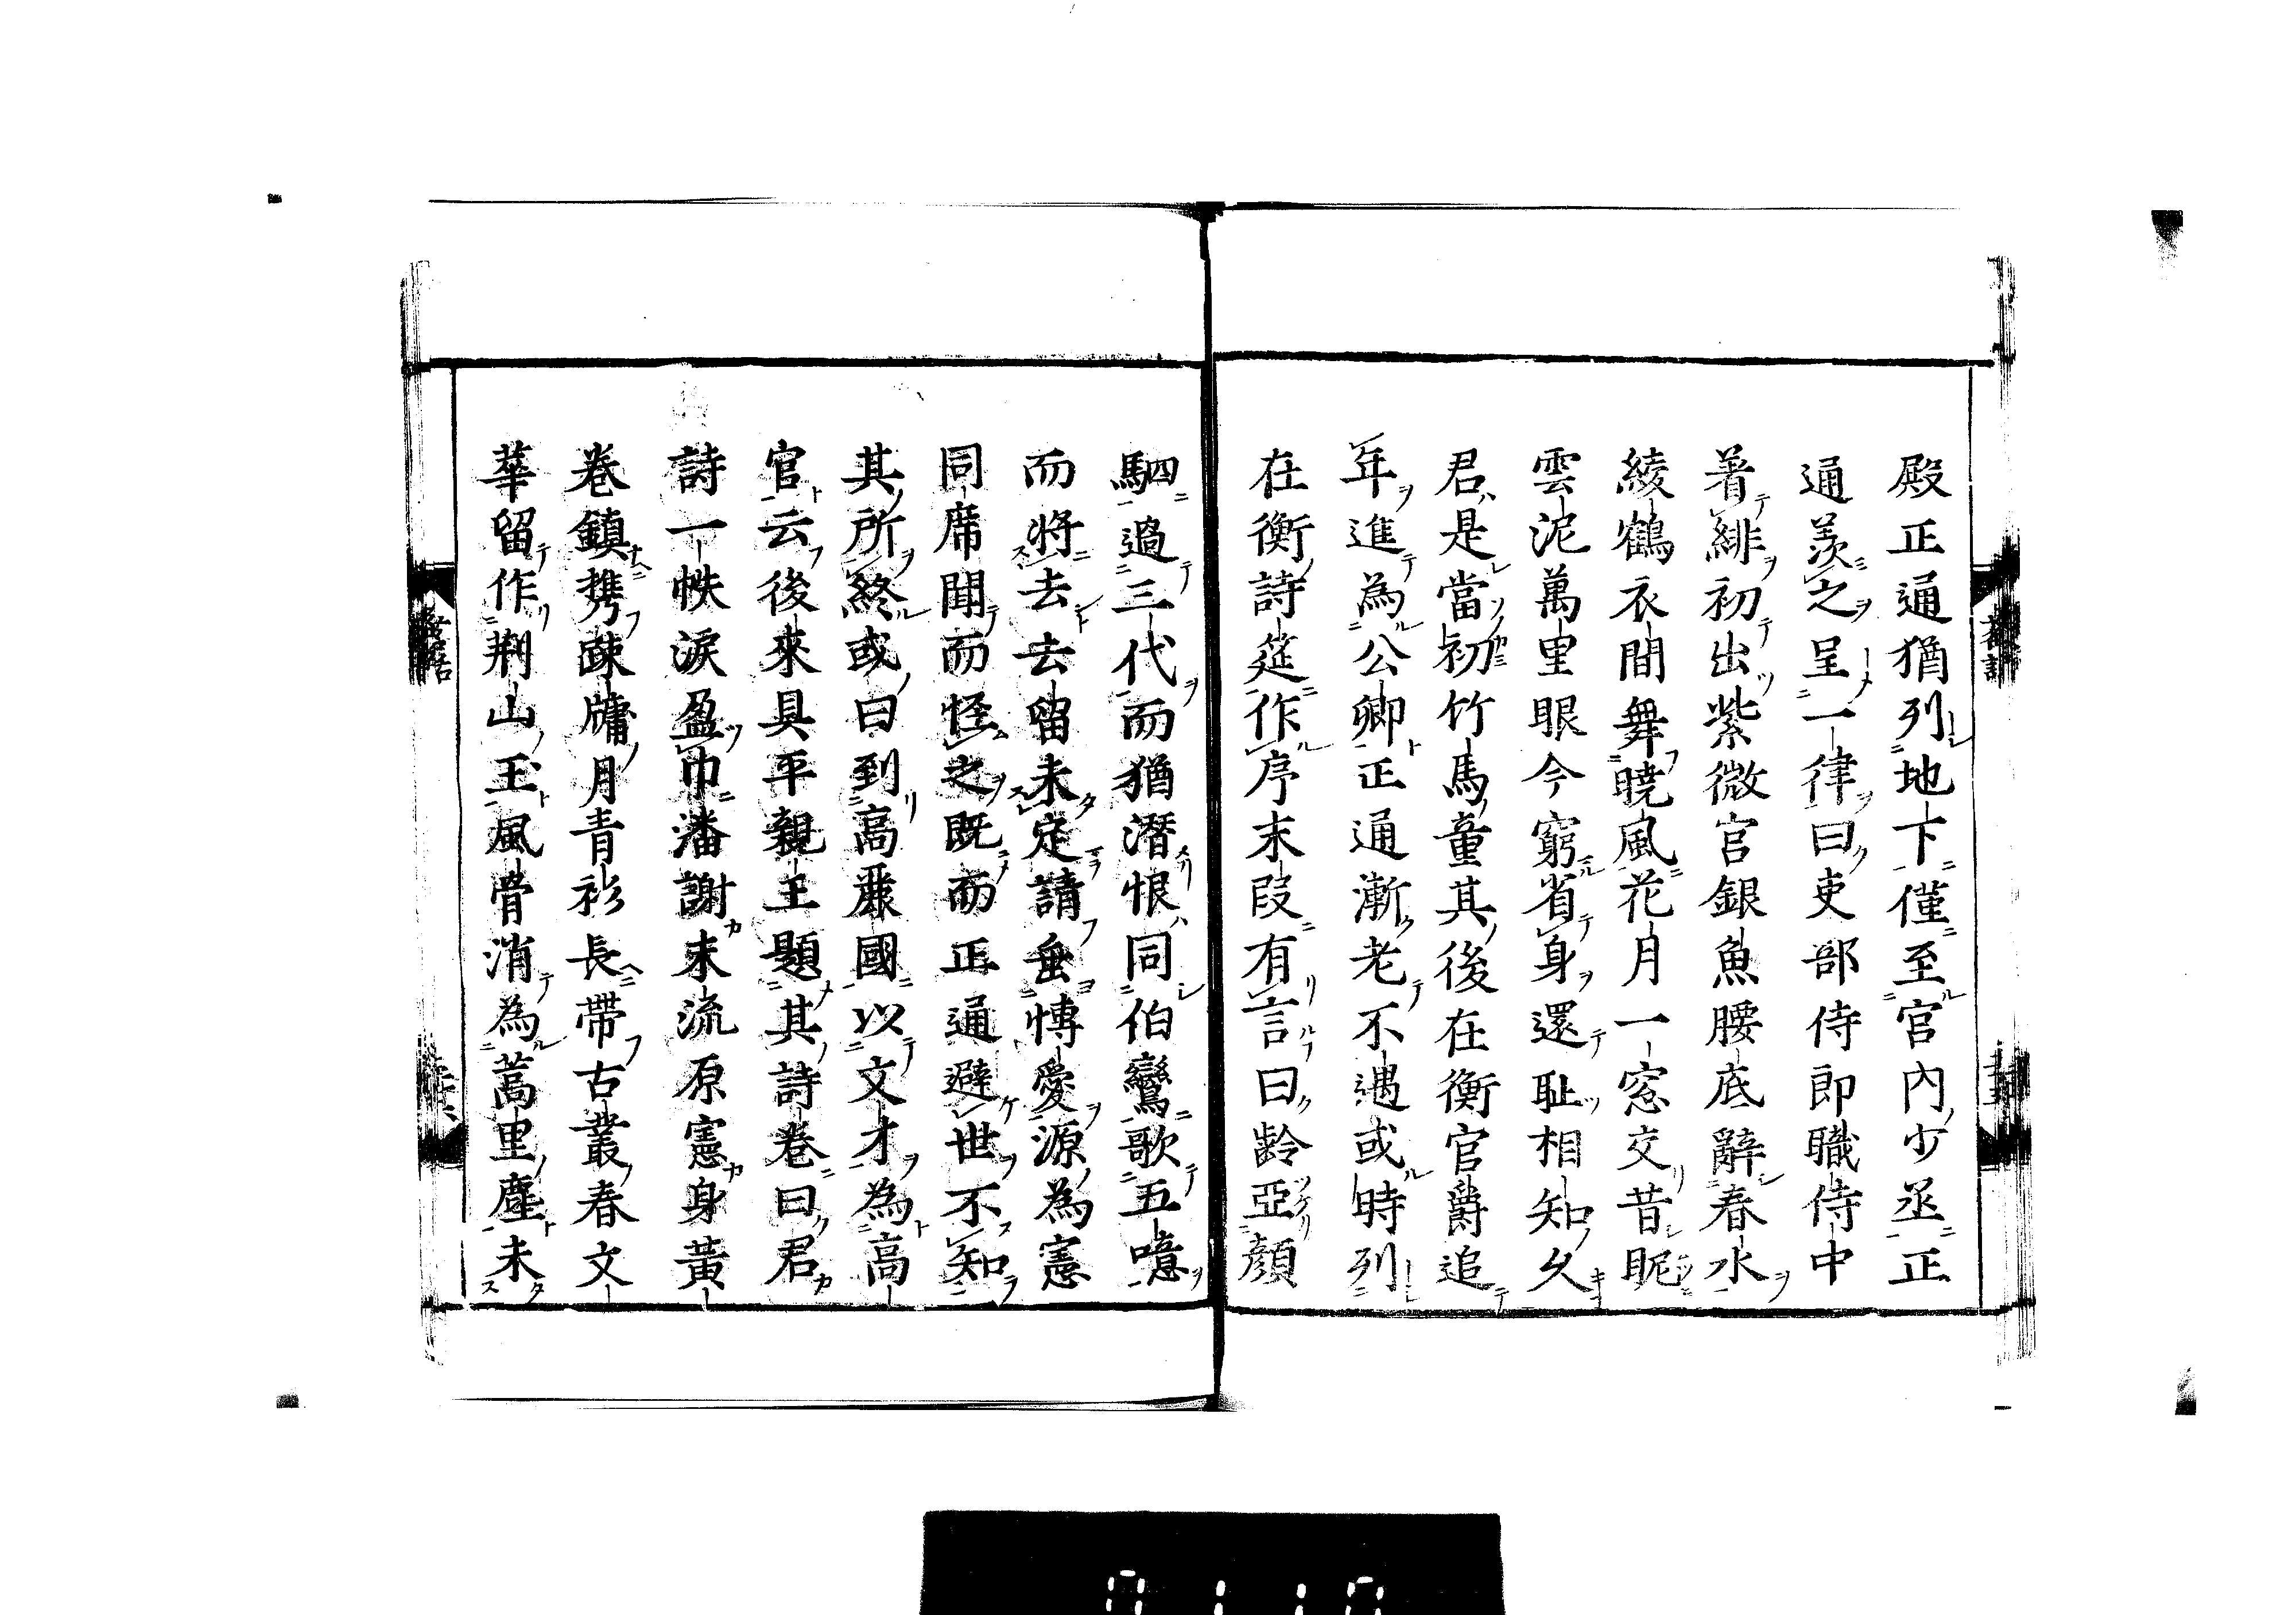 殿正通猶列地下僅至宮內少丞正
通羨之呈一律曰吏部侍郎職侍中
著緋初出紫微宮銀魚腰底辭春水
綾鶴衣間舞曉風花月一窓交昔昵
雲泥萬里眼今窮省身還耻相知久
君是當初竹馬童其後在衡官爵追
年進為公卿正通漸老不遇或時列
在衡詩筵作序末段有言曰齡亞顏
駟過三代而猶潛恨同伯鸞歌五噫
而將去去留未定請垂愽愛源為憲
同席聞而怪之既而正通避世不知
其所終或曰到高麗國以文才為高
官云後來具平親王題其詩卷曰君
詩一帙淚盈巾潘謝末流原憲身黃
卷鎮携疎牖月青衫長帶古叢春文
華留作荆山玉風骨消為蒿里塵未
0110